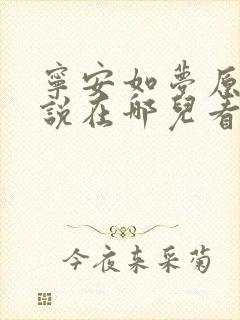 寧安如夢原
說在哪兒看
今夜來采菊